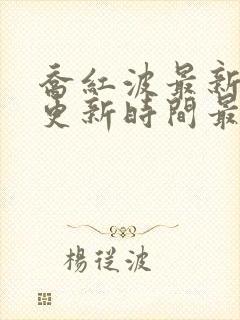 喬紅波最新
更新時間最
楊從波